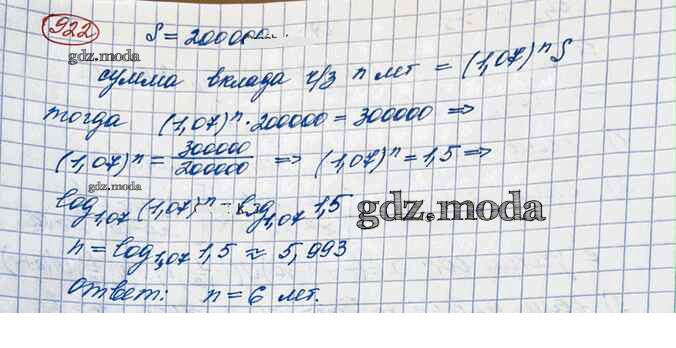 922
S = 200000
gdz.moda
сумма вклада ч/з n лет = (1,07)ⁿ S
тогда (1,07)ⁿ · 200000 = 300000 ⇒
(1,07)ⁿ = 300000/200000 ⇒ (1,07)ⁿ = 1,5 ⇒
gdz.moda
log₁,₀₇ (1,07)ⁿ = log₁,₀₇ 1,5
gdz.moda
n = log₁,₀₇ 1,5 ≈ 5,993
ответ: n = 6 лет.